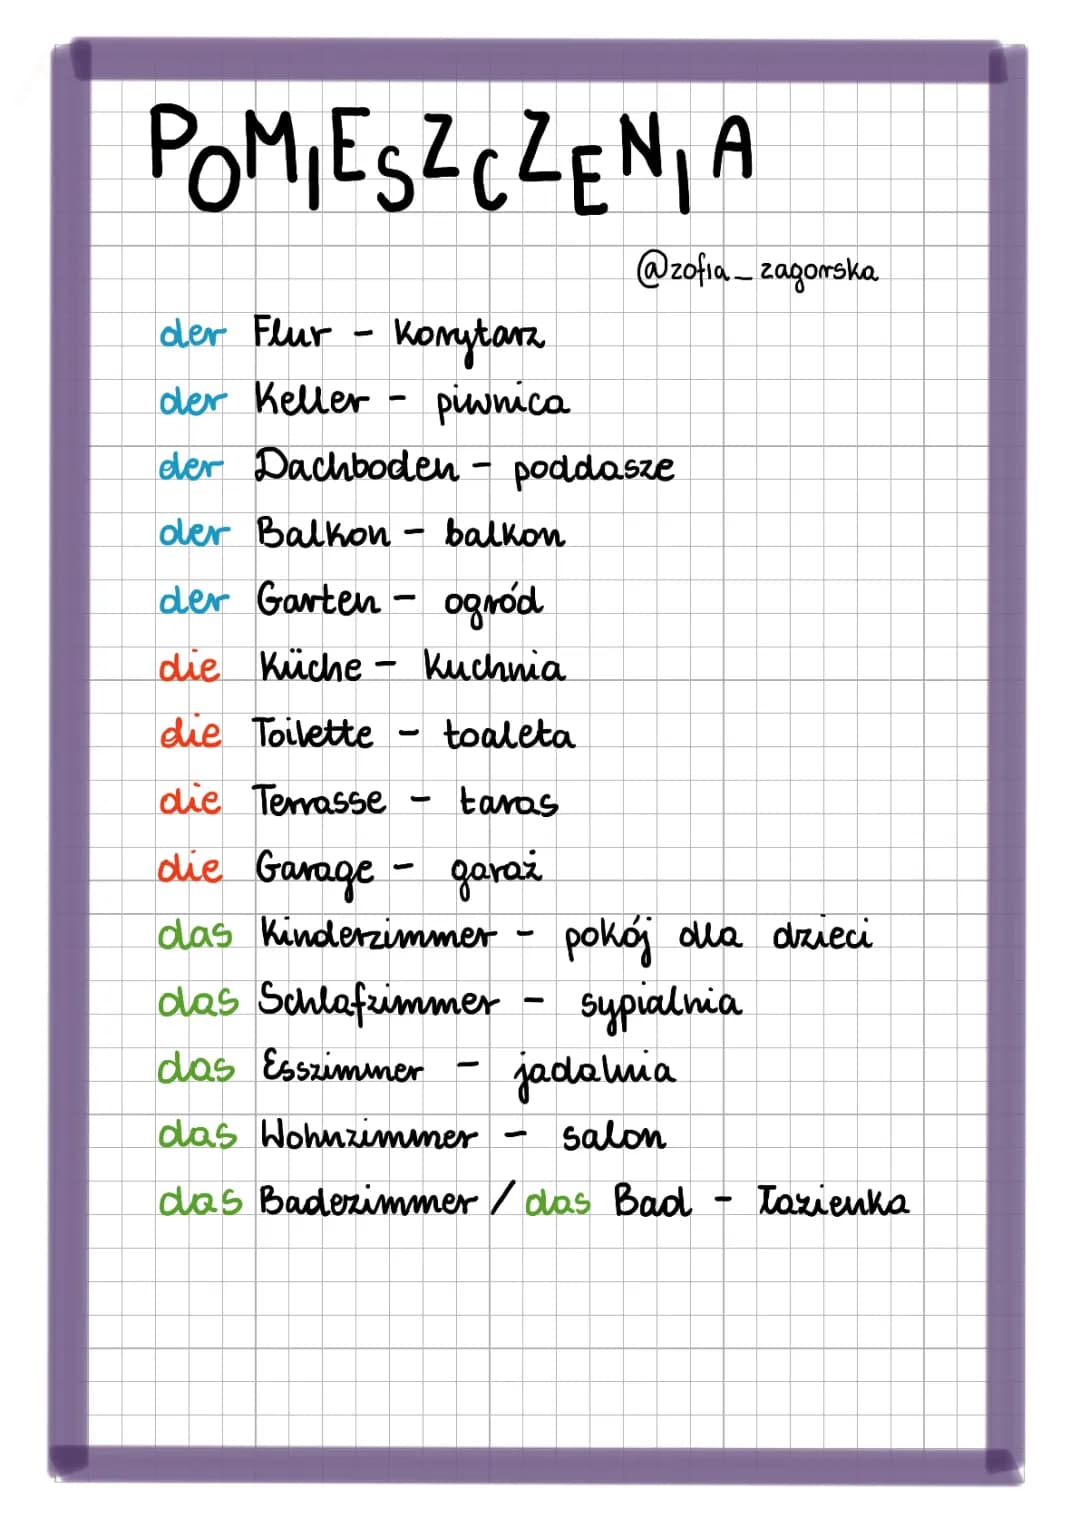 POMIESZCZENIA
@zofia_zagorska
der Flur - korytarz
der Keller - piwnica
der Dachboden - poddasze
der Balkon - balkon
der Garten - ogród
die Küche - kuchnia
die Toilette - toaleta
die Terrasse - taras
die Garage - garaż
das Kinderzimmer - pokój dla dzieci
das Schlafzimmer - sypialnia
das Esszimmer - jadalnia
das Wohnzimmer - salon
das Badezimmer / das Bad - Łazienka